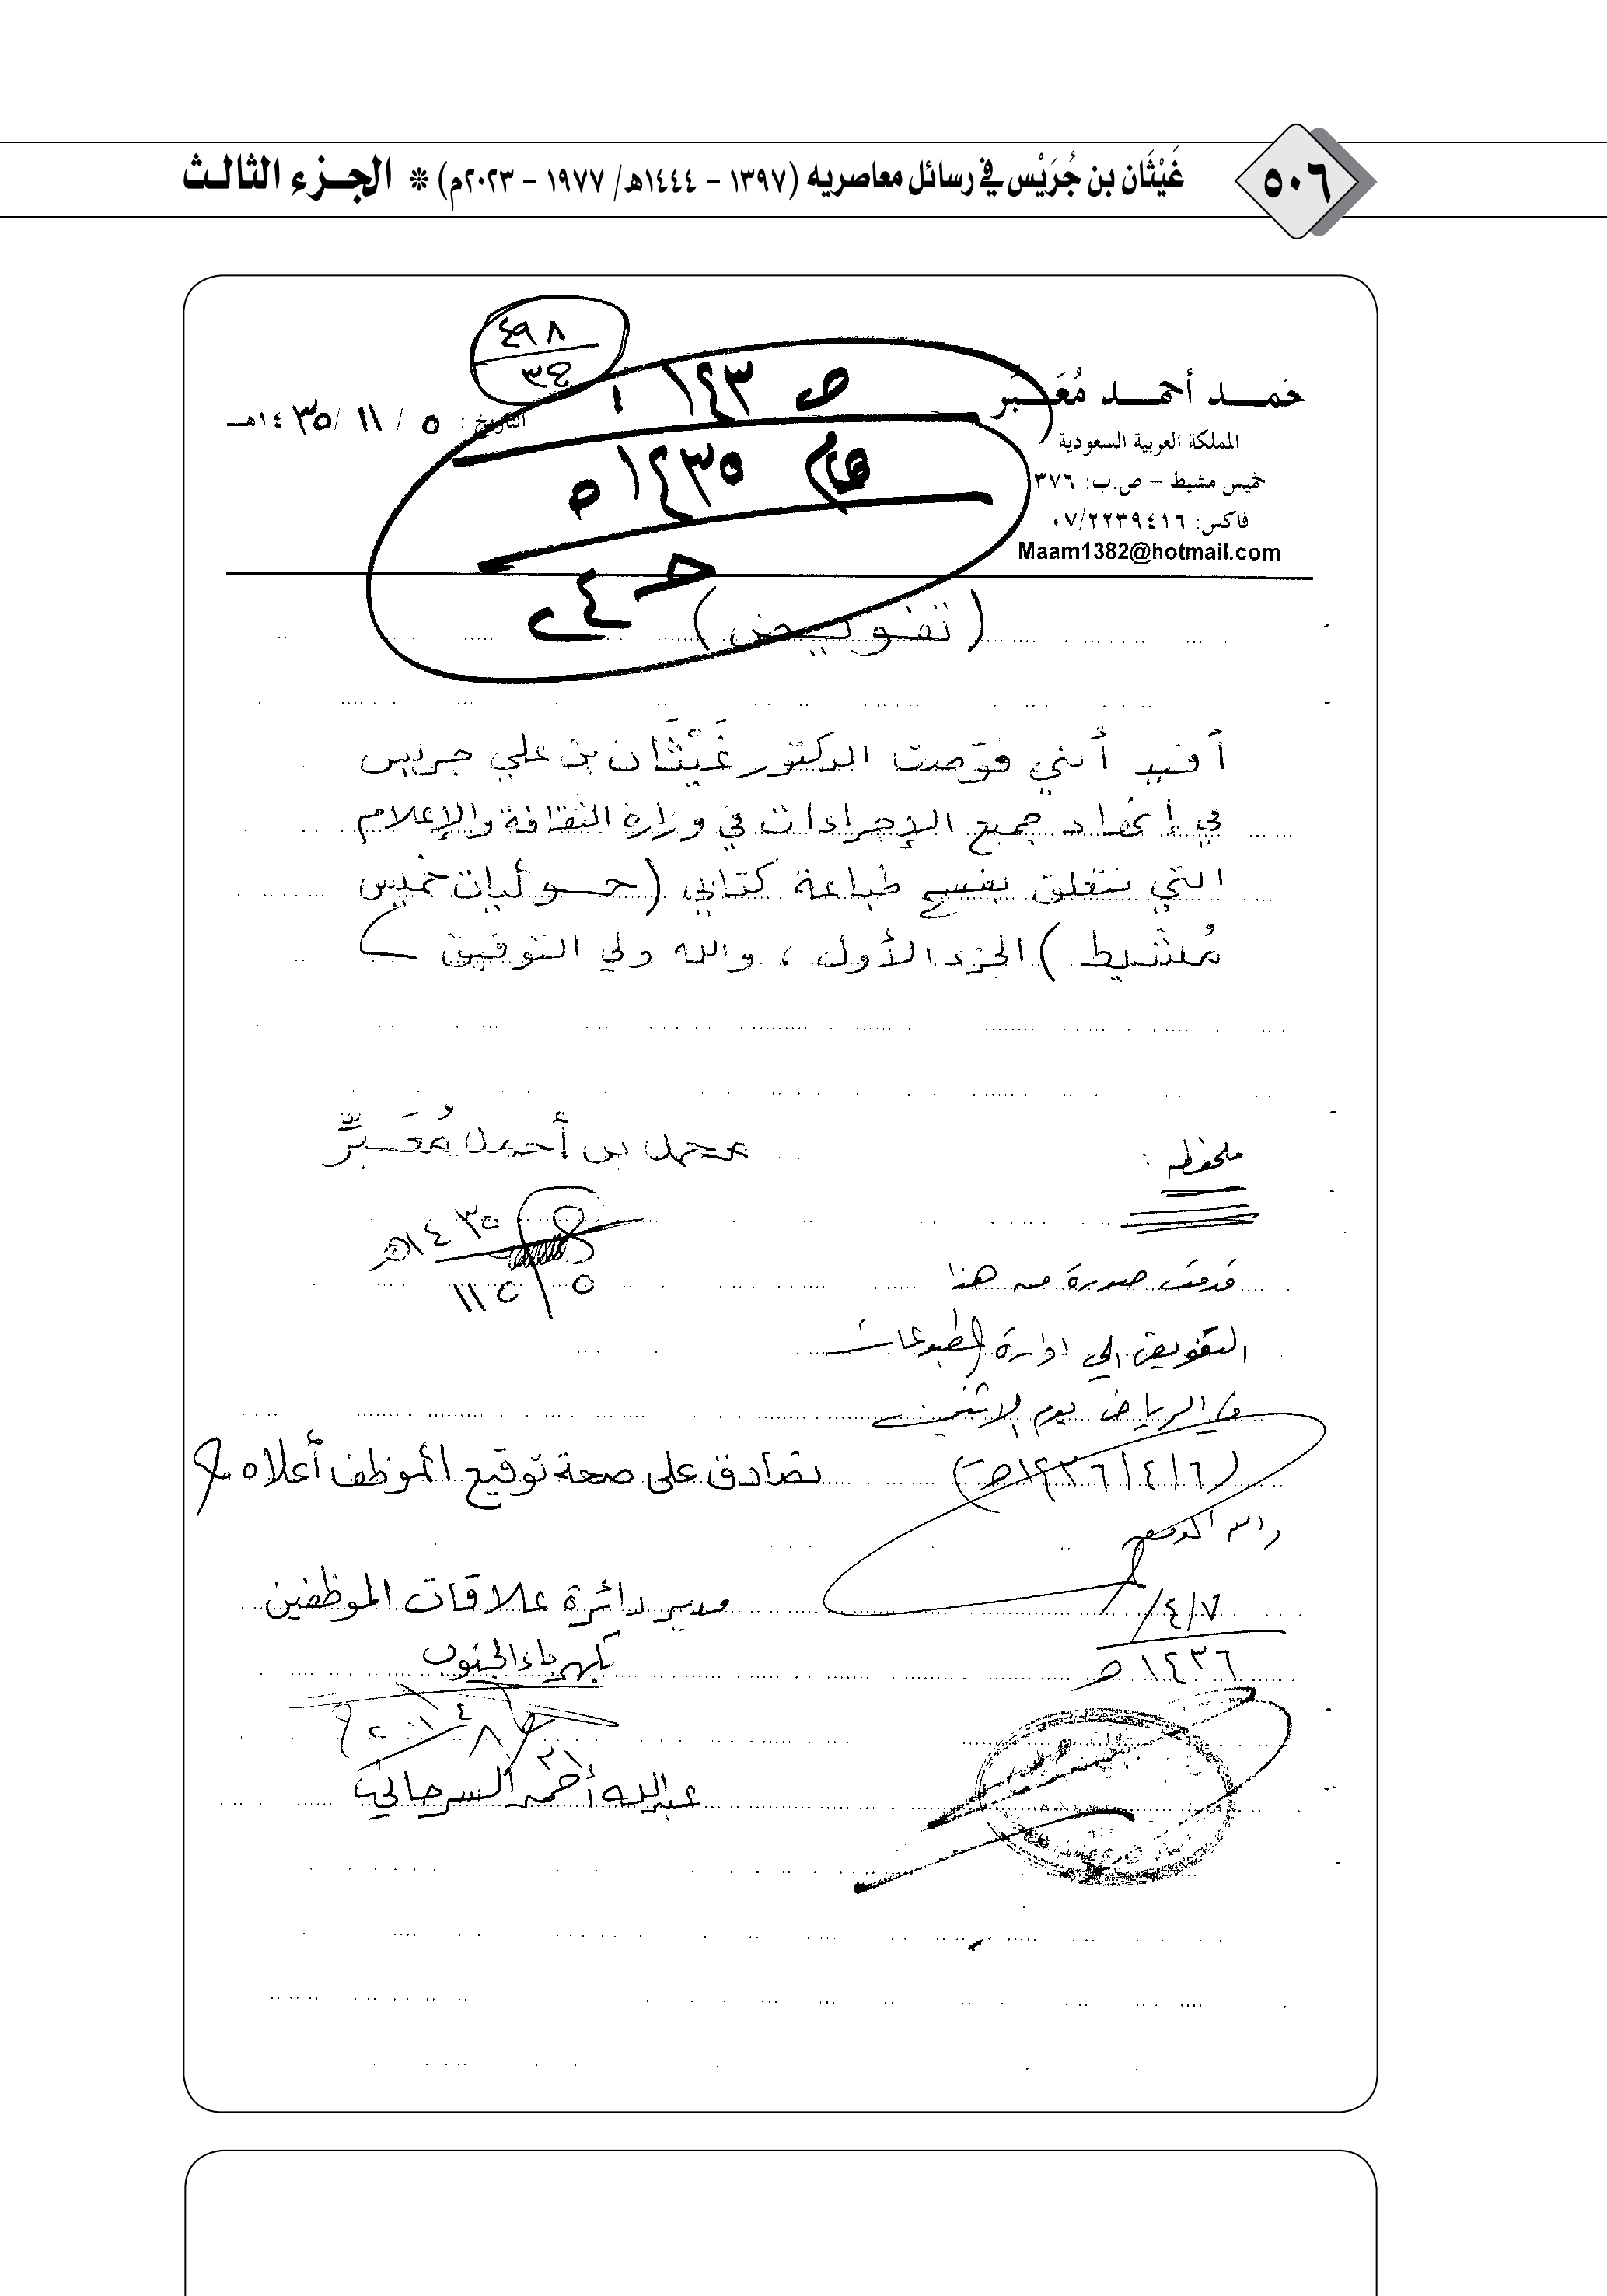 ٥٠٦
غَيْثَان بن جُرَيْس في رسائل معاصريه (١٣٩٧ – ١٤٤٤هـ/ ١٩٧٧ – ٢٠٢٣م) * الجزء الثالث
٤٩٨
٣٤
ص ١٤٣
عام ١٤٣٥ه
محمد أحمد مُعَبّر
المملكة العربية السعودية
خميس مشيط – ص.ب: ٣٧٦
فاكس: ٠٧/٢٢٣٩٤١٦
Maam1382@hotmail.com
التاريخ: ٥ / ١١ / ١٤٣٥هـ
(تفويض)
أفيد أنني فوّضت الدكتور غَيْثَان بن علي جريس
في إتخاذ جميع الإجراءات في وزارة الثقافة والإعلام
التي تتعلق بفسح طباعة كتابي (حوليات خميس
مُشيط) الجزء الأول، والله ولي التوفيق
محمد بن أحمد مُعَبِّر
١٤٣٥هـ
١١ ٥
ملحظه :
قدمت صورة من هذا
التفويض إلى ادارة المطبوعات
في الرياض يوم الاثنين
(٦/٤/١٤٣٦هـ)
٧/٤/
١٤٣٦هـ
نصادق على صحة توقيع الموظف أعلاه
مدير دائرة علاقات الموظفين
كهرباء الجنوب
عبدالله أحمد السرحاني